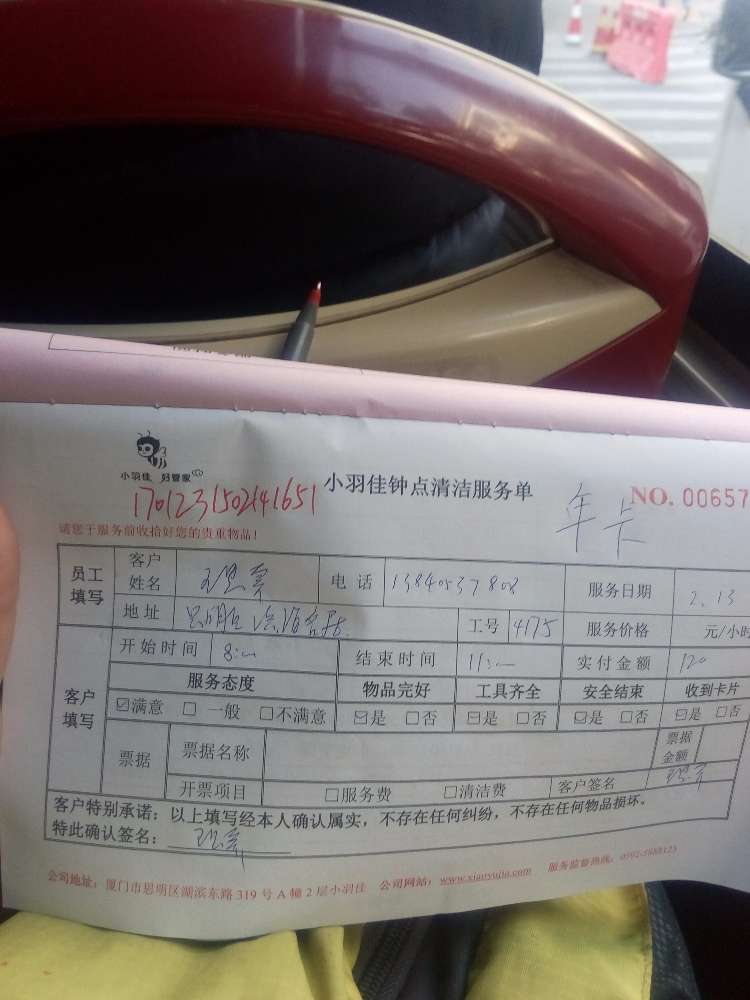 小羽佳 好管家
小羽佳钟点清洁服务单
NO. 00657
1701231502141651
年卡
请您于服务前收拾好您的贵重物品！
员工填写
客户姓名 电话 13840537808 服务日期 2.13
地址 工号 4175 服务价格 元/小时
客户填写
开始时间 8:— 结束时间 11:— 实付金额 120
服务态度 物品完好 工具齐全 安全结束 收到卡片
☑满意 □一般 □不满意 ☑是 □否 ☑是 □否 ☑是 □否 ☑是 □否
票据 票据名称 票据金额
开票项目 □服务费 □清洁费 客户签名
客户特别承诺：以上填写经本人确认属实，不存在任何纠纷，不存在任何物品损坏。
特此确认签名：
公司地址：厦门市思明区湖滨东路319号A幢2层小羽佳 公司网站：www.xiaoyujia.com 服务监督热线：